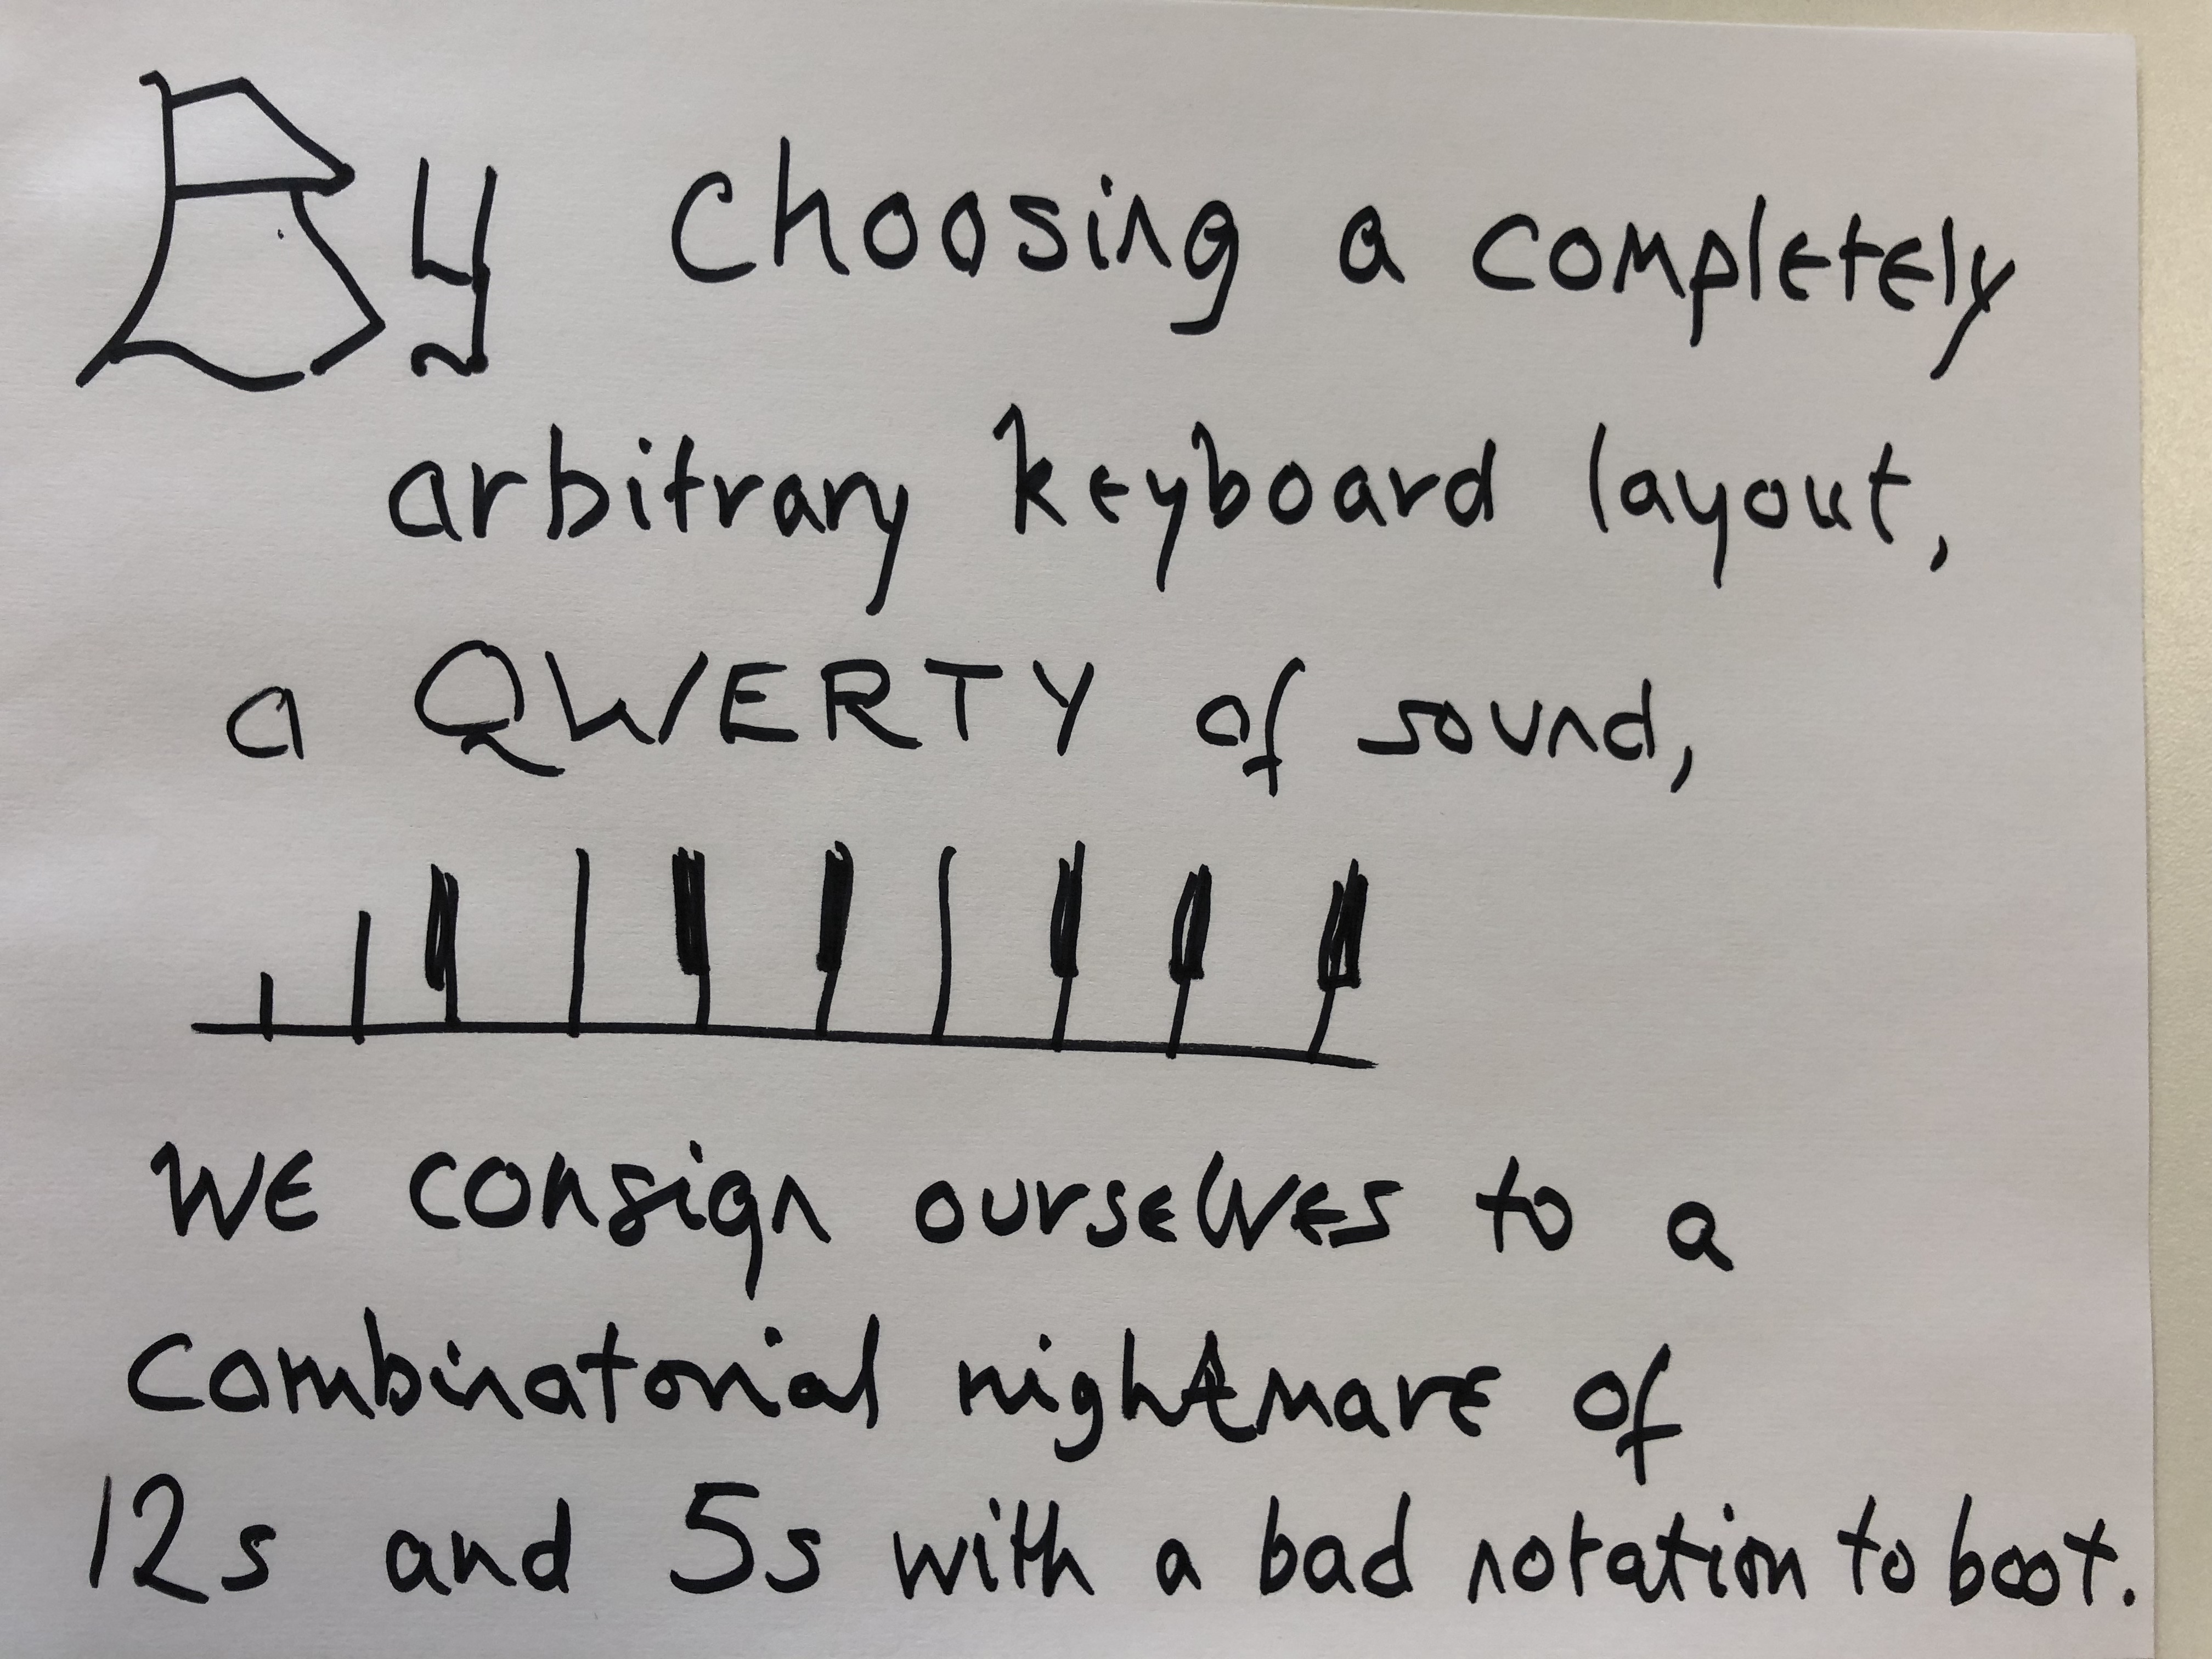 By choosing a completely
arbitrary keyboard layout,
a QWERTY of sound,
we consign ourselves to a
combinatorial nightmare of
12s and 5s with a bad notation to boot.